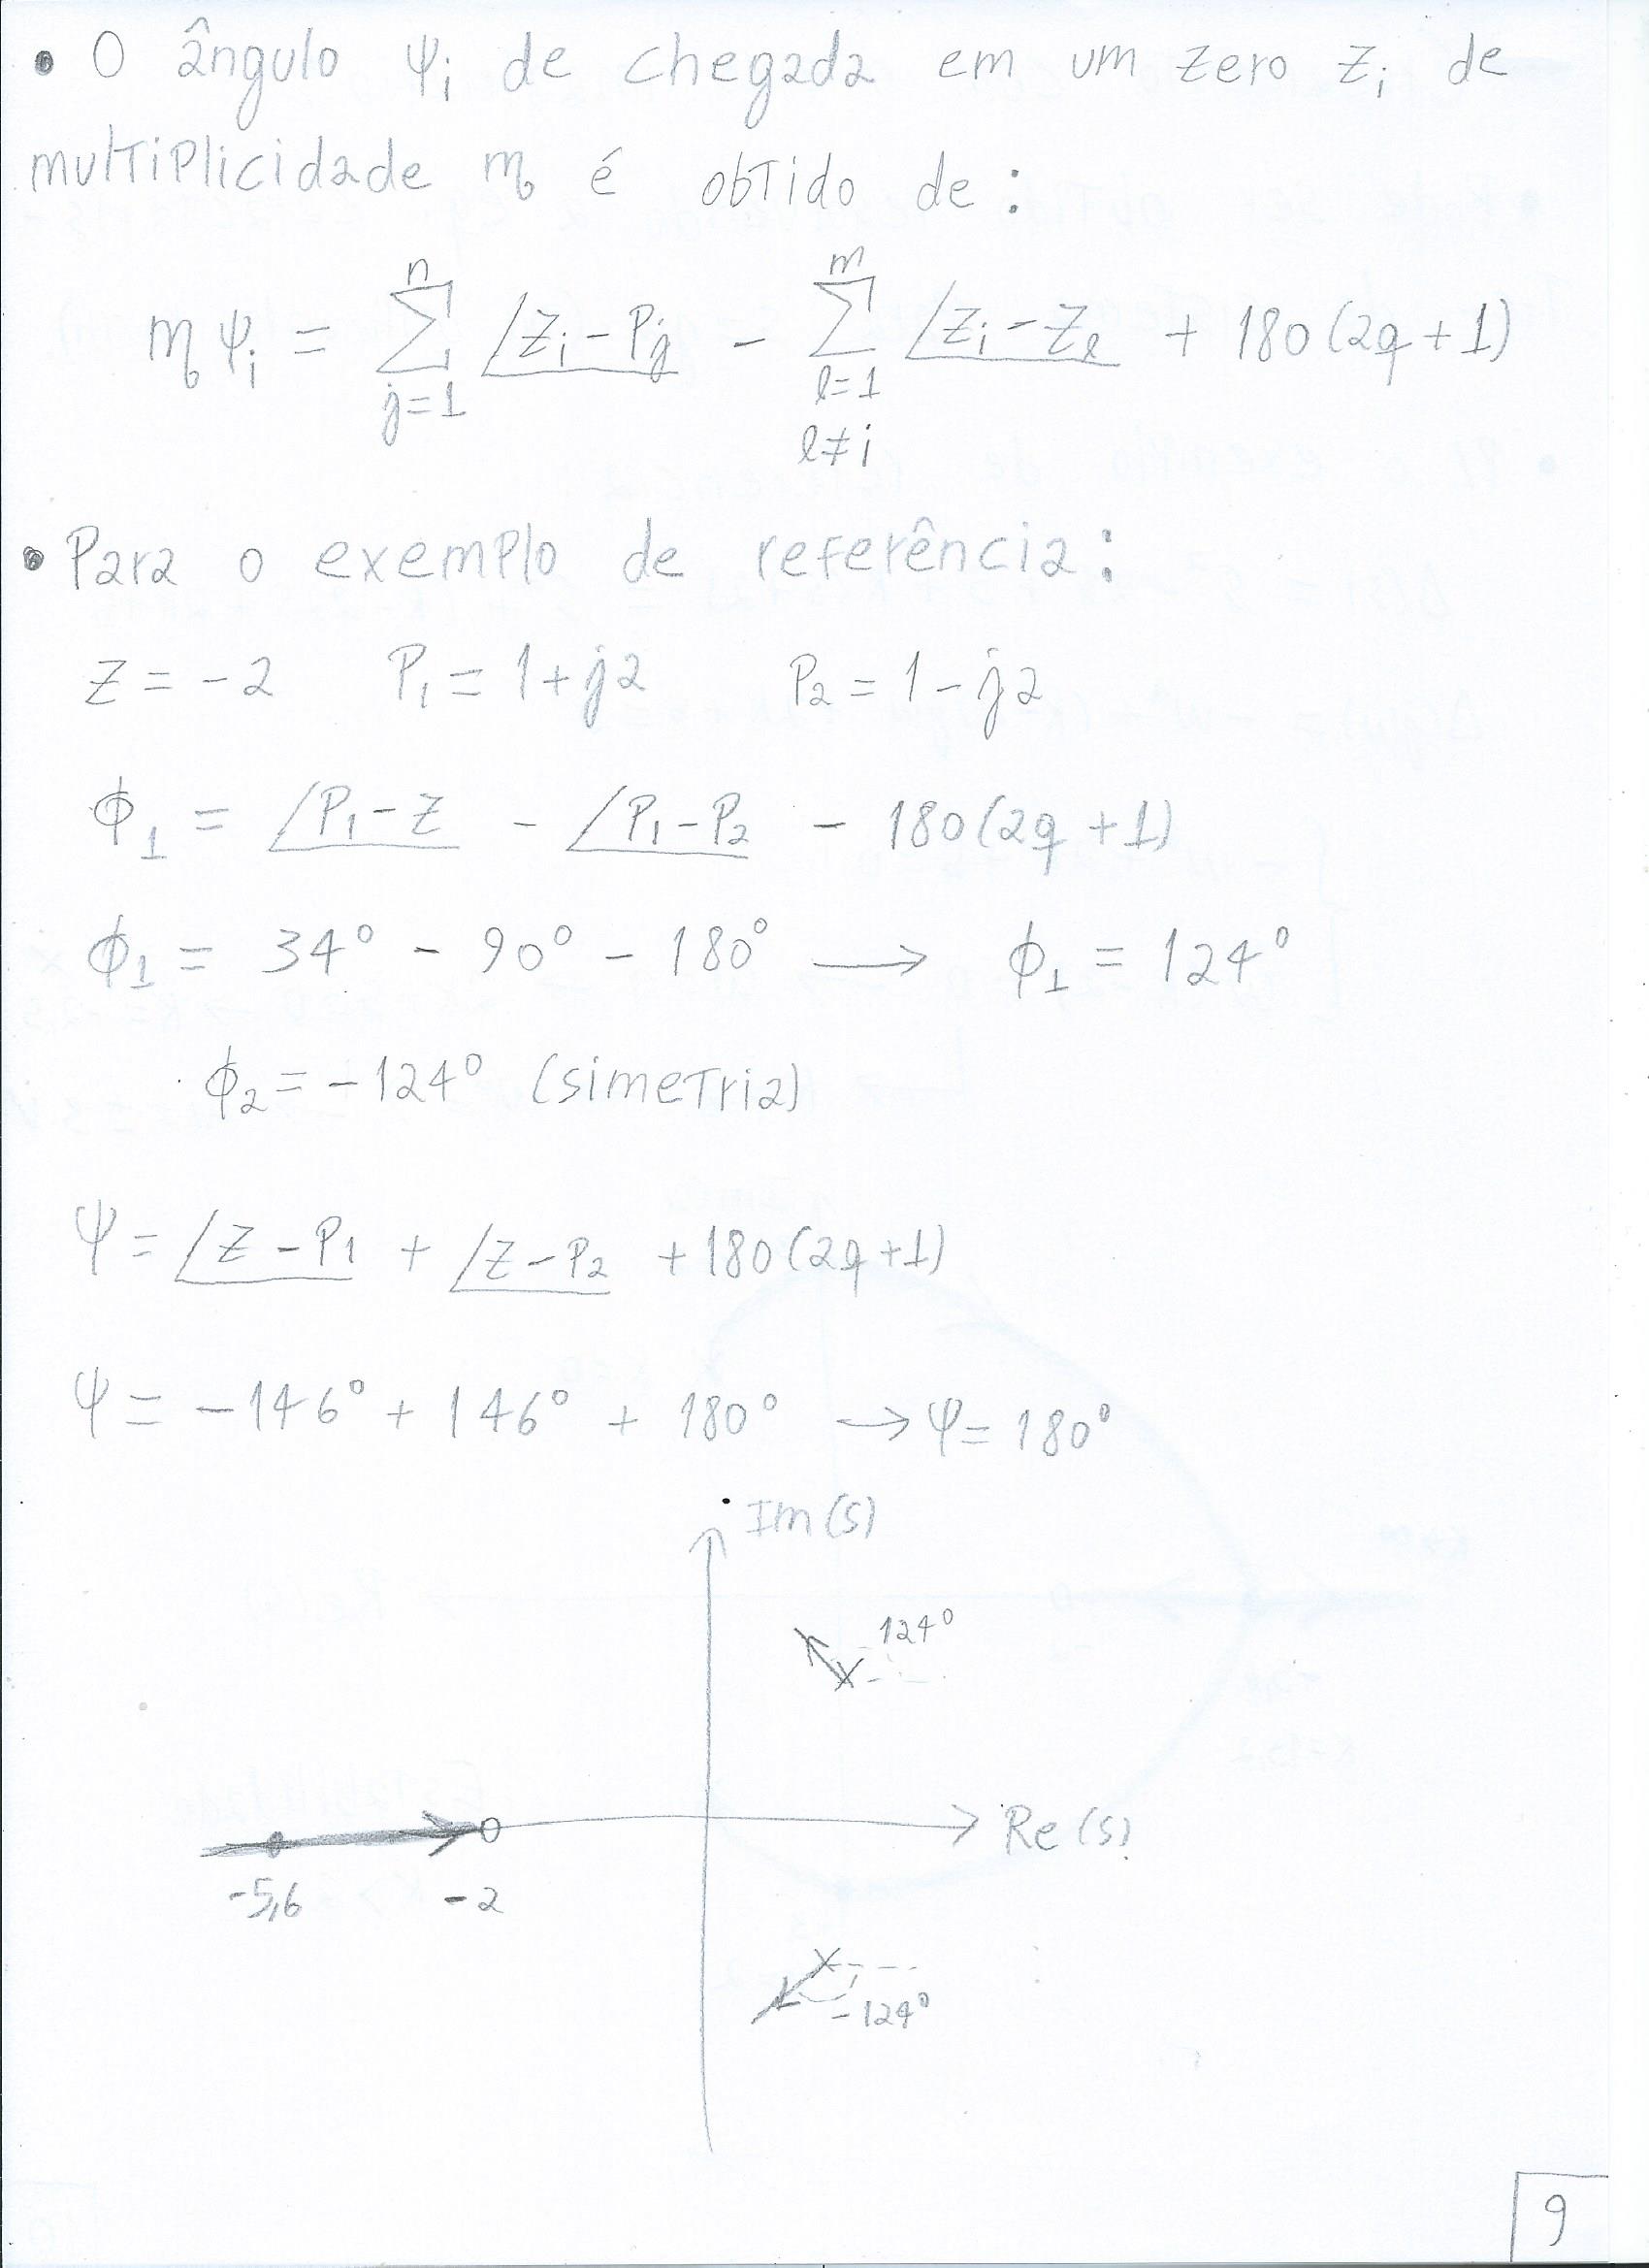 • O ângulo ψi de chegada em um zero zi de
multiplicidade m é obtido de:
m ψi = Σ(j=1, n) ∠zi - Pj - Σ(l=1, l≠i, m) ∠zi - zl + 180(2q+1)
• Para o exemplo de referência:
z = -2 P1 = 1+j2 P2 = 1-j2
ϕ1 = ∠P1-z - ∠P1-P2 - 180(2q+1)
ϕ1 = 34° - 90° - 180° → ϕ1 = 124°
ϕ2 = -124° (simetria)
ψ = ∠z-P1 + ∠z-P2 + 180(2q+1)
ψ = -146° + 146° + 180° → ψ = 180°
Im(s)
124°
Re(s)
-5,6 -2
-124°
9